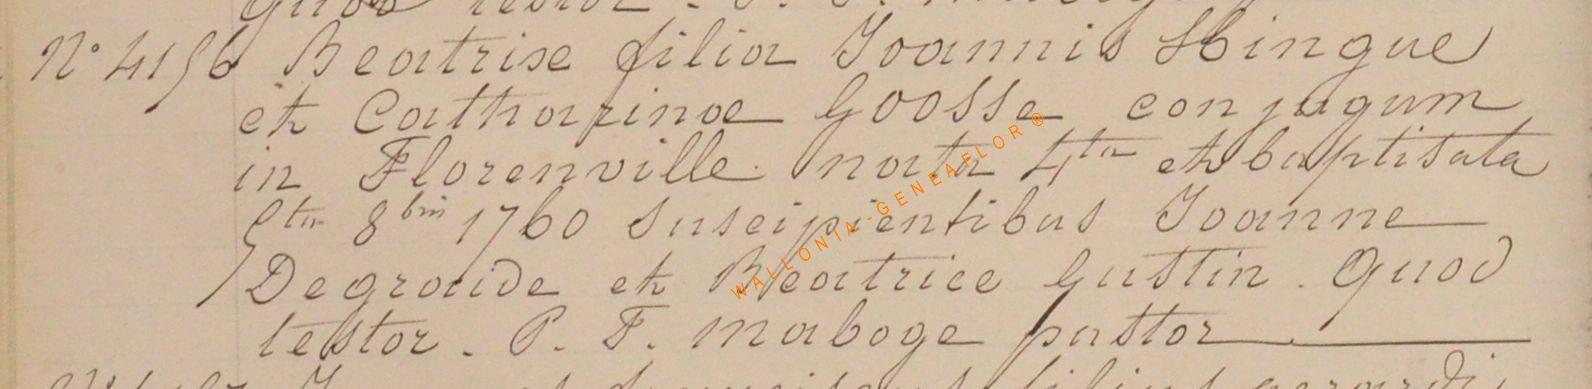 N° 4156 Beatrise filia Joannis Hingue
et Catharinae Goosse conjugum
in Florenville. nata 4ta et baptisata
5ta 8bris 1760 suscipientibus Joanne
Degraide et Beatrice Gustin. Quod
testor. P. F. Maboge pastor
WALLONIA-GENEAFLOR®